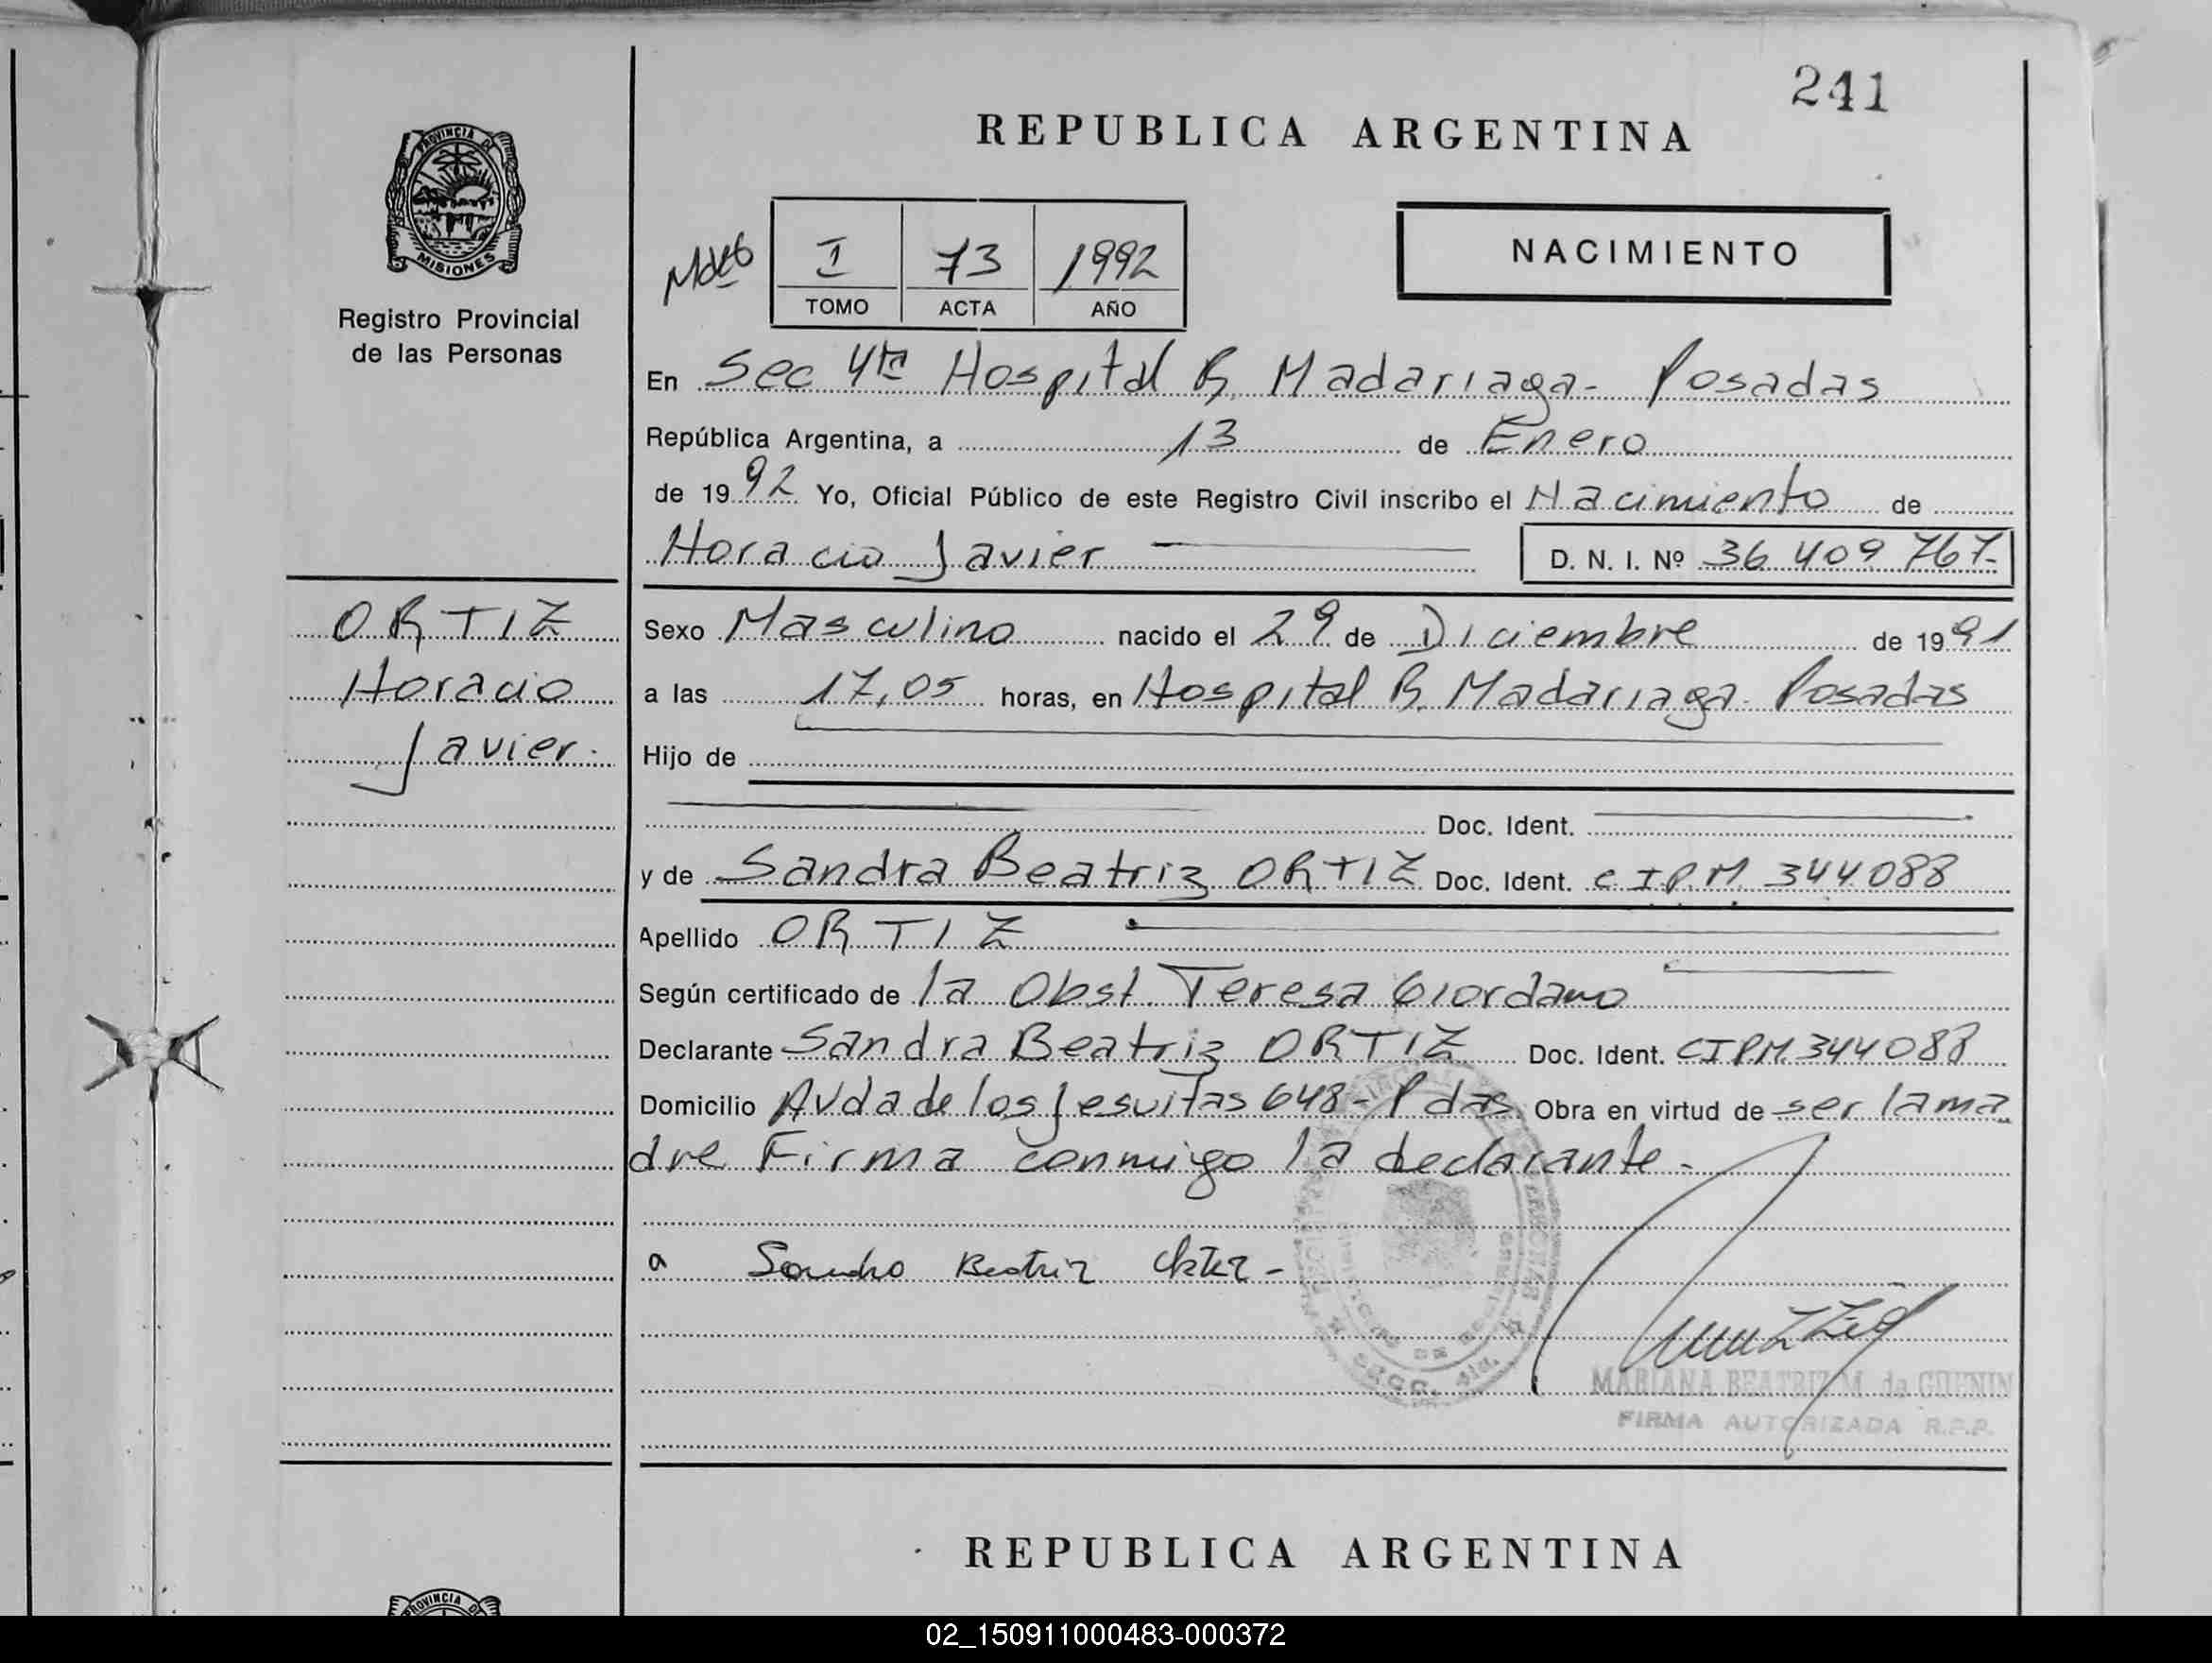 241
REPUBLICA ARGENTINA
PROVINCIA DE
MISIONES
Registro Provincial
de las Personas
I 73 1992
TOMO ACTA AÑO
NACIMIENTO
En Sec 4ta Hospital R. Madariaga- Posadas
República Argentina, a 13 de Enero
de 1992 Yo, Oficial Público de este Registro Civil inscribo el Nacimiento de
Horacio Javier D. N. I. Nº 36 409 767-
ORTIZ
Horacio
Javier.
Sexo Masculino nacido el 29 de Diciembre de 1991
a las 17,05 horas, en Hospital R. Madariaga- Posadas
Hijo de
Doc. Ident.
y de Sandra Beatriz ORTIZ Doc. Ident. C I.P.M. 344088
Apellido ORTIZ
Según certificado de la Obst. Teresa Giordano
Declarante Sandra Beatriz ORTIZ Doc. Ident. CIPM 344088
Domicilio Avda de los Jesuitas 648- Pdas. Obra en virtud de ser la ma
dre Firma conmigo la declarante-
a Sandra Beatriz Ortiz -
MARIANA BEATRIZ M. de GUENIN
FIRMA AUTORIZADA R.P.P.
REPUBLICA ARGENTINA
PROVINCIA DE
02_150911000483-000372